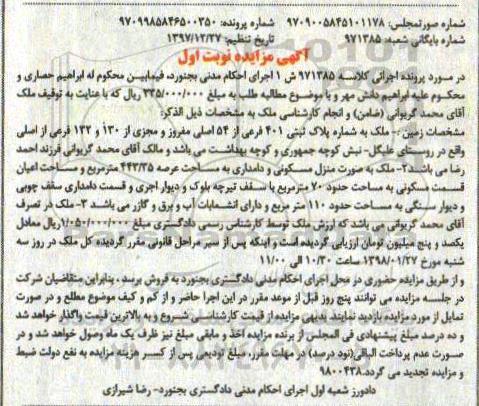 شماره صورتمجلس: ۹۷۰۹۰۰۵۸۴۵۱۰۱۱۷۸ شماره پرونده: ۹۷۰۹۹۸۵۸۴۶۵۰۰۳۵۰
شماره بایگانی شعبه: ۹۷۱۳۸۵ تاریخ تنظیم: ۱۳۹۷/۱۲/۲۷
آگهی مزایده نوبت اول
در مورد پرونده اجرائی کلاسه ۹۷۱۳۸۵ ش ۱ اجرای احکام مدنی بجنورد، فیمابین محکوم له ابراهیم حصاری و
محکوم علیه ابراهیم دانش مهر و با موضوع مطالبه طلب به مبلغ ۳۳۵/۰۰۰/۰۰۰ ریال که با عنایت به توقیف ملک
آقای محمد گریوانی (ضامن) و انجام کارشناسی ملک به مشخصات ذیل الذکر:
مشخصات زمین :- ملک به شماره پلاک ثبتی ۴۰۱ فرعی از ۵۴ اصلی مفروز و مجزی از ۱۳۰ و ۱۳۲ فرعی از اصلی
واقع در روستای علیگل- نبش کوچه جمهوری و کوچه بهداشت می باشد و مالک آقای محمد گریوانی فرزند احمد
رضا می باشد ۲- ملک به صورت منزل مسکونی و دامداری به مساحت عرصه ۴۴۳/۳۵ مترمربع و مساحت اعیان
قسمت مسکونی به مساحت حدود ۷۰ مترمربع با سقف تیرچه بلوک و دیوار آجری و قسمت دامداری سقف چوبی
و دیوار سنگی به مساحت حدود ۱۱۰ متر مربع و دارای انشعابات آب و برق و گاز می باشد ۳- ملک در تصرف
آقای محمد گریوانی می باشد که ارزش ملک توسط کارشناس رسمی دادگستری مبلغ ۱/۰۵۰/۰۰۰/۰۰۰ ریال معادل
یکصد و پنج میلیون تومان ارزیابی گردیده است و اینکه پس از سیر مراحل قانونی مقرر گردیده کل ملک در روز سه
شنبه مورخ ۱۳۹۸/۰۱/۲۷ ساعت ۱۰/۳۰ الی ۱۱/۰۰
و از طریق مزایده حضوری در محل اجرای احکام مدنی دادگستری بجنورد به فروش برسد ، بنابراین متقاضیان شرکت
در جلسه مزایده می توانند پنج روز قبل از موعد مقرر در این اجرا حاضر و از کم و کیف موضوع مطلع و در صورت
تمایل از مورد مزایده بازدید نمایند بدیهی مزایده از قیمت کارشناسی شروع و به بالاترین قیمت واگذار خواهد شد
و ده درصد مبلغ پیشنهادی فی المجلس از برنده مزایده اخذ و مابقی مبلغ نیز ظرف یک ماه وصول خواهد شد و در
صورت عدم پرداخت الباقی(نود درصد) در مهلت مقرر، مبلغ تودیعی پس از کسر هزینه مزایده به نفع دولت ضبط
و مزایده تجدید می گردد.۹۸۰۰۴۳۸
دادورز شعبه اول اجرای احکام مدنی دادگستری بجنورد- رضا شیرازی